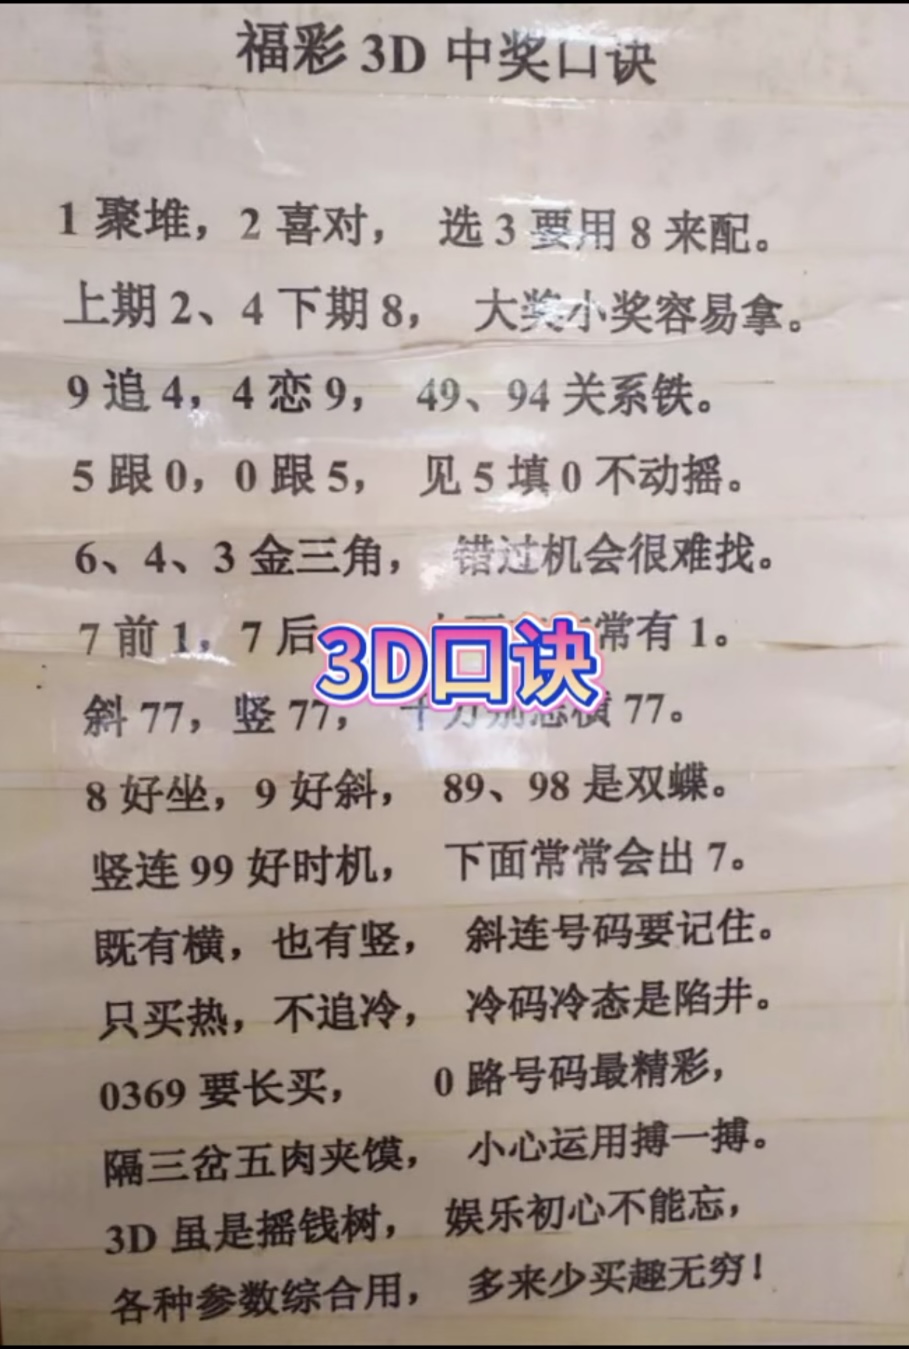 福彩 3D 中奖口诀
1 聚堆，2 喜对， 选 3 要用 8 来配。
上期 2、4 下期 8， 大奖小奖容易拿。
9 追 4，4 恋 9， 49、94 关系铁。
5 跟 0，0 跟 5， 见 5 填 0 不动摇。
6、4、3 金三角， 错过机会很难找。
7 前 1，7 后 常有 1。
3D口诀
斜 77，竖 77， 千万别忘横 77。
8 好坐，9 好斜， 89、98 是双蝶。
竖连 99 好时机， 下面常常会出 7。
既有横，也有竖， 斜连号码要记住。
只买热，不追冷， 冷码冷态是陷井。
0369 要长买， 0 路号码最精彩，
隔三岔五肉夹馍， 小心运用搏一搏。
3D 虽是摇钱树， 娱乐初心不能忘，
各种参数综合用， 多来少买趣无穷！